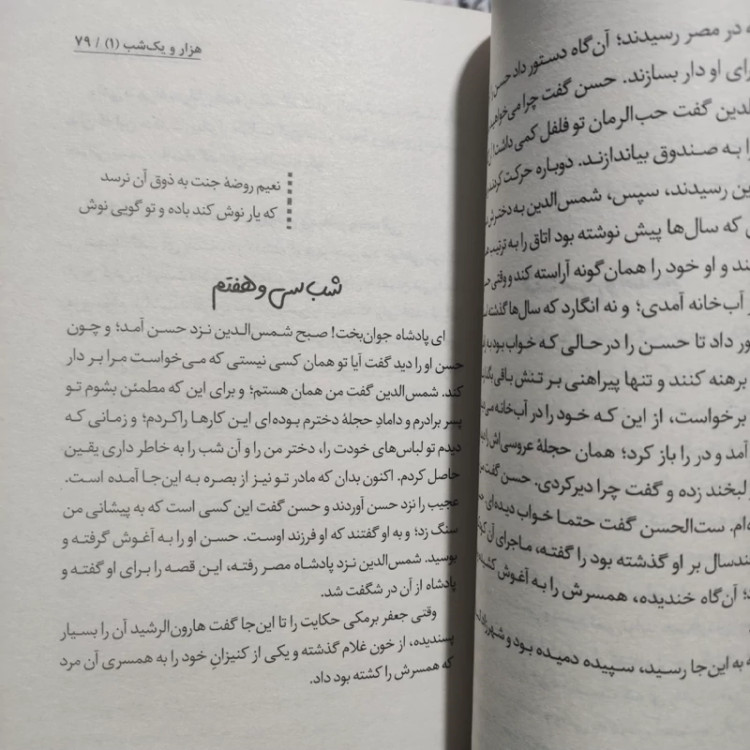 ه در مصر رسیدند؛ آن‌گاه دستور داد حسن
رای او دار بسازند. حسن گفت چرا می‌خواهید
الدین گفت حب‌الرمان تو فلفل کمی داشت!
را به صندوق بیاندازند. دوباره حرکت کردند
ین رسیدند، سپس، شمس‌الدین به دخترش
ی که سال‌ها پیش نوشته بود اتاق را به ترتیب
ند و او خود را همان‌گونه آراسته کند و وقتی
ز آب‌خانه آمدی؛ و نه انگارد که سال‌ها گذشته
ور داد تا حسن را درحالی که خواب بود
برهنه کنند و تنها پیراهنی بر تنش باقی
برخواست، از این که خود را در آب‌خانه
آمد و در را باز کرد؛ همان حجلهٔ عروسی‌اش را
لبخند زده و گفت چرا دیرکردی. حسن گفت
ه‌ام. ست‌الحسن گفت حتما خواب دیده‌ای.
ندسال بر او گذشته بود را گفته، ماجرای آن
د؛ آن‌گاه خندیده، همسرش را به آغوش
ه به این‌جا رسید، سپیده دمیده بود و
هزار و یک‌شب (۱) / ۷۹
نعیم روضهٔ جنت به ذوق آن نرسد
که یار نوش کند باده و تو گویی نوش
شب سی و هفتم
ای پادشاه جوان‌بخت! صبح شمس‌الدین نزد حسن آمد؛ و چون
حسن او را دید گفت آیا تو همان کسی نیستی که می‌خواست مرا بر دار
کند. شمس‌الدین گفت من همان هستم؛ و برای این که مطمئن بشوم تو
پسر برادرم و دامادِ حجلهٔ دخترم بوده‌ای این کارها راکردم؛ و زمانی که
دیدم تو لباس‌های خودت را، دختر من را و آن شب را به خاطر داری یقین
حاصل کردم. اکنون بدان که مادر تو نیز از بصره به این‌جا آمده است.
عجیب را نزد حسن آوردند و حسن گفت این کسی است که به پیشانی من
سنگ زد؛ و به او گفتند که او فرزند اوست. حسن او را به آغوش گرفته و
بوسید. شمس‌الدین نزد پادشاه مصر رفته، این قصه را برای او گفته و
پادشاه از آن در شگفت شد.
وقتی جعفر برمکی حکایت را تا این‌جا گفت هارون‌الرشید آن را بسیار
پسندیده، از خون غلام گذشته و یکی از کنیزانِ خود را به همسری آن مرد
که همسرش را کشته بود داد.